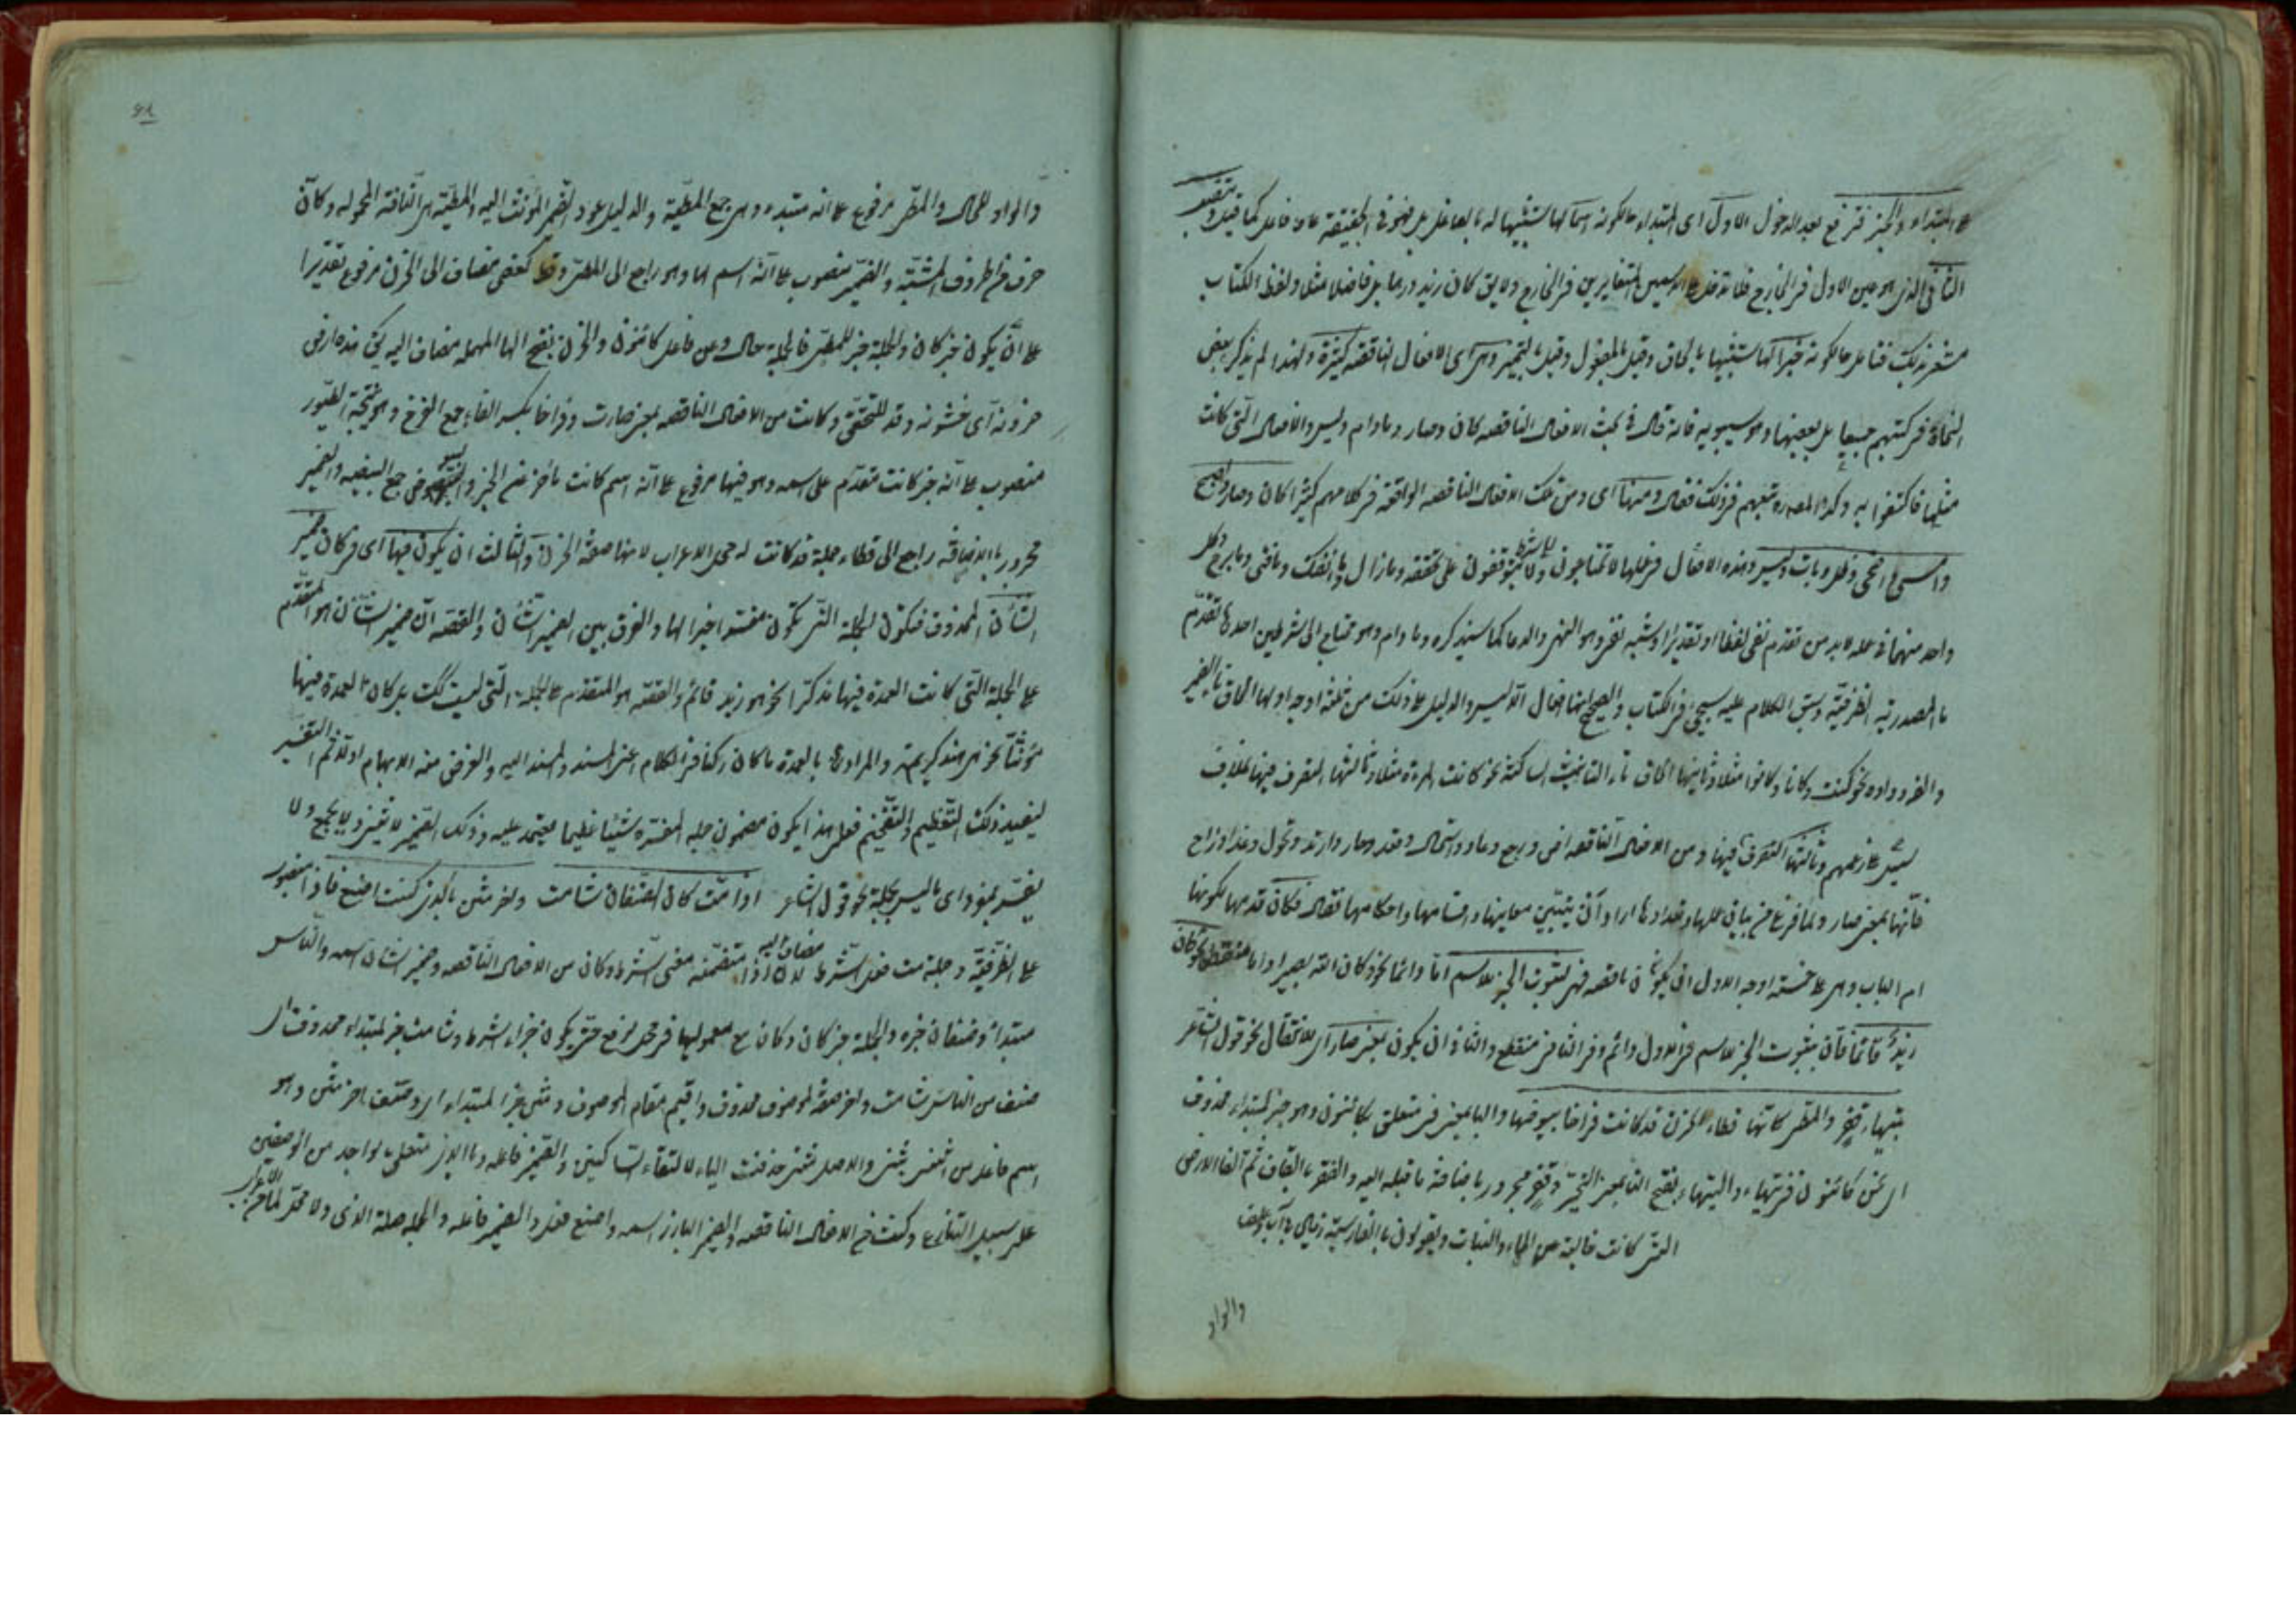 على المبتداء والخبز فترفع بعد الدخول الاول اى المبتداء على كونه اسما لها لتشبيهها له بالفاعل بل هو فى الحقيقة فاعل كما قيل وتنصب
الثانى الذى هو عين الاول فى الخارج على الاسمين المتغايرين فى الخارج ولا يق كان زيد درهما بل فاضلا مثلا ولفظ الكتاب
مشعر بذلك على كونه خبرا لها لتشبيهها بالحال وقيل بالمفعول وقيل بالتميز وهى اى الافعال الناقصه كثيرة ولهذا لم يذكر بعض
النحاة فى كتبهم جميعا بل بعضها وهو سيبويه فانه قال فى بحث الافعال الناقصه كان وصار ومادام وليس والافعال التى كانت
مثلها فاكتفوا به وكذا المص تبعهم فى ذلك فقال ومنها اى ومن تلك الافعال الناقصه الواقعة فى كلامهم كثيرا كان وصار واصبح
وامسى واضحى وظل وبات وليس وهذه الافعال فى عملها لا تحتاجون الى شرط ولا يتوقفون على تحققه ومازال وما انفك ومافتئ ومابرح وكل
واحد منهما فى عمله لابد من تقدم نفى لفظا او تقديرا او شبه نفى وهو النهى والدعا كما سيذكره ومادام وهو محتاج الى شرطين احدها تقدم
ما المصدرية الظرفية وسبق الكلام عليه سيجئ فى الكتاب والصحيح انها افعال الا ليس والدليل على ذلك من ثلثة اوجه اولها الحاق تا الضمير
والفه وواوه نحو كنت وكانا وكانوا مثلا وثانيها الحاق تاء التانيث الساكنة نحو كانت المرءة مثلا وثالثها التصرف فيها بخلاف
ليس على زعمهم وثالثها التصرف فيها ومن الافعال الناقصه اض ورجع وعاد واستحال وقعد وحار وارتد وتحول وغدا وراح
فانها بمعنى صار ولما فرغ من بيان عملها وتعدادها اراد ان يبين معانيها واقسامها واحكامها فقال فكان قدمها لكونها
ام الباب وهى على خمسة اوجه الاول ان يكون ناقصه فهى لثبوت الخبر للاسم اما دائما نحو كان الله بصيرا واما منقطعا نحو كان
زيد قائما فان ثبوت الخبر للاسم فى الاول دائم وفى الثانى منقطع والثانى ان يكون بمعنى صار اى للانتقال نحو قول الشاعر
بتيهاء قفر والمطى كانها قطاء الحزن قد كانت فراخا بيوضها والبا بمعنى فى متعلق بكائنون وهو خبر لمبتداء محذوف
اى نحن كائنون فى تيهاء والتيهاء بفتح التا بمعنى التحير وقفر مجرور باضافة ما قبله اليه والقفر بالقاف ثم الفا الارض
التى كانت خالية من الماء والنبات ويقولون بالفارسية زمين بى آب وعلف
والواو
والواو للحال والمطى مرفوع على انه مبتدء وهى جمع المطية والدليل عود الضمير المؤنث اليه والمطية هى الناقة المحموله وكان
حرف من الحروف المشبهة والضمير منصوب على انه اسم لها وهو راجع الى المطى وقطا كعصى مضاف الى الحزن مرفوع تقديرا
على ان يكون خبر كان والجملة خبر للمطى فالجملة حال عن فاعل كائنون والحزن بفتح الحا المهمله مضاف اليه يق هذه ارض
حزونه اى خشونه وقد للتحقيق وكانت من الافعال الناقصه بمعنى صارت وفراخا بكسر الفاء جمع الفرخ وهو نتيجة الطيور
منصوب على انه خبر كانت مقدم على اسمه وهو فيها مرفوع على انه اسم كانت تأخر عن الخبر والبيوض جمع البيضه والضمير
مجرور بالاضافه راجع الى قطاء جملة قد كانت له محل الاعراب لانها صفة الحزن والثالث ان يكون فيها اى فى كان ضمير
الشأن المحذوف فتكون الجملة التى تكون مفسرا خبرا لها والفرق بين الضمير الشأن والقصه ان ضمير الشأن هو المتقدم
على الجملة التى كانت العمدة فيها مذكرا نحو هو زيد قائم والقصه هو المتقدم على الجملة التى ليست كك بل كان العمدة فيها
مؤنثا نحو هى هند كريمة والمراد بالعمدة ما كان ركنا فى الكلام اعنى المسند والمسند اليه والغرض منه الابهام اولا ثم التفسير
ليفيد ذلك التعظيم والتفخيم فعلى هذا يكون مضمون جمله المفسره شيئا عظيما يعتمد عليه وذلك الضمير لا يثنى ولا يجمع ولا
يفسر بمفرد اى ما ليس بجملة نحو قول الشاعر اذا مت كان الصنفان شامت واخر مثن بالذى كنت اصنع فاذا منصوب
على الظرفية وجملة مت فعل الشرط مضاف اليه لان اذا متضمنه معنى الشرط وكان من الافعال الناقصه وضمير الشان اسمه والناس
مبتداء وصنفان خبره والجملة خبر كان وكان مع معموليها فى محل الرفع حتى يكون جزاء الشرط وشامت خبر لمبتداء محذوف اى
صنف من الناس شامت واخر صفة لموصوف محذوف واقيم مقام الموصوف ومثن خبر المبتداء اى وصنف اخر مثن وهو
اسم فاعل من اثنى يثنى والاصل مثنى حذفت الياء لالتقاء الساكنين والضمير فاعله وبالذى متعلق بواحد من الوصفين
على سبيل التنازع وكنت من الافعال الناقصه والضمير البارز اسمه واصنع فعل والضمير فاعله والجمله صلة الذى ولا محل لها من الاعراب